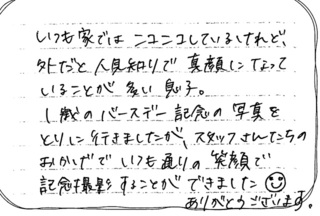 いつも家ではニコニコしているけれど、
外だと人見知りで真顔になって
いることが多い息子。
1歳のバースデー記念の写真を
とりに行きましたが、スタッフさんたちの
おかげでいつも通りの笑顔で
記念撮影することができました
ありがとうございます。